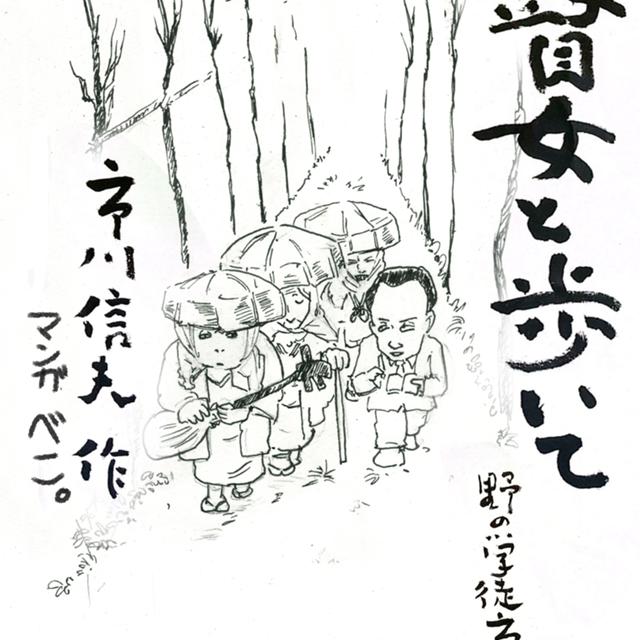 瞽女と歩いて
野の学徒
市川信夫 作
マンガ ベン。